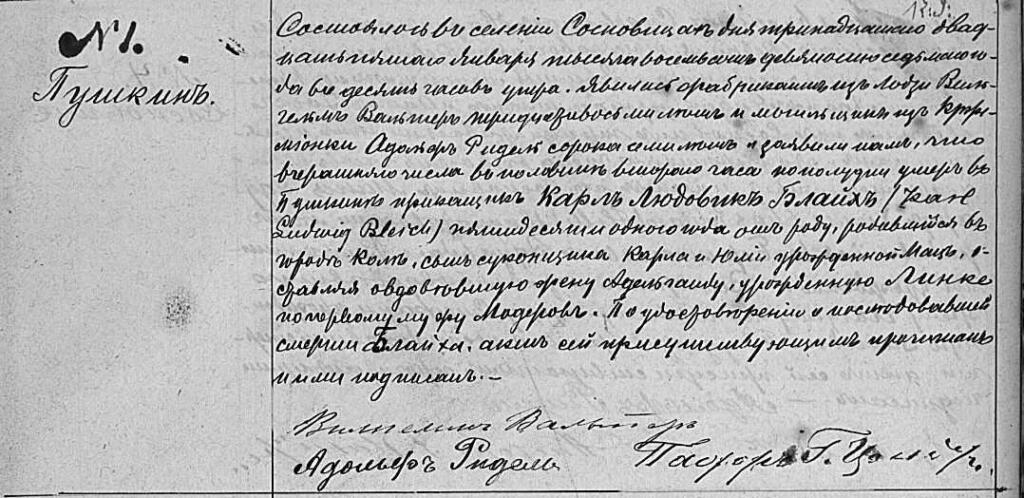 № 1.
Пушкинъ.
Состоялось въ селеніи Сосновицахъ дня тринадцатаго двад-
цать пятаго Января тысяча восемьсотъ девяносто седьмаго го-
да въ десять часовъ утра. Явились фабрикантъ изъ Лодзи Виль-
гельмъ Вальтеръ тридцативосьмилѣтъ и могильщикъ изъ
Адольфъ Ридель сорока семи лѣтъ и заявили намъ, что
вчерашняго числа въ половинѣ втораго часа пополудни умеръ въ
Пушкинѣ прикащикъ Карлъ Людовикъ Блайхъ /Karl
Ludwig Bleich/ пятидесяти одного года отъ роду, родившійся въ
городѣ Колѣ, сынъ суконщика Карла и Юліи урожденной Мацъ, о-
ставляя овдовѣвшую жену урожденную Линке
по первому мужу Модеровъ. По удостовѣреніи о послѣдовавшей
смерти Блайха, актъ сей присутствующимъ прочитанъ
и ими подписанъ. —
Вильгельмъ Вальтеръ
Адольфъ Ридель Пасторъ Г.